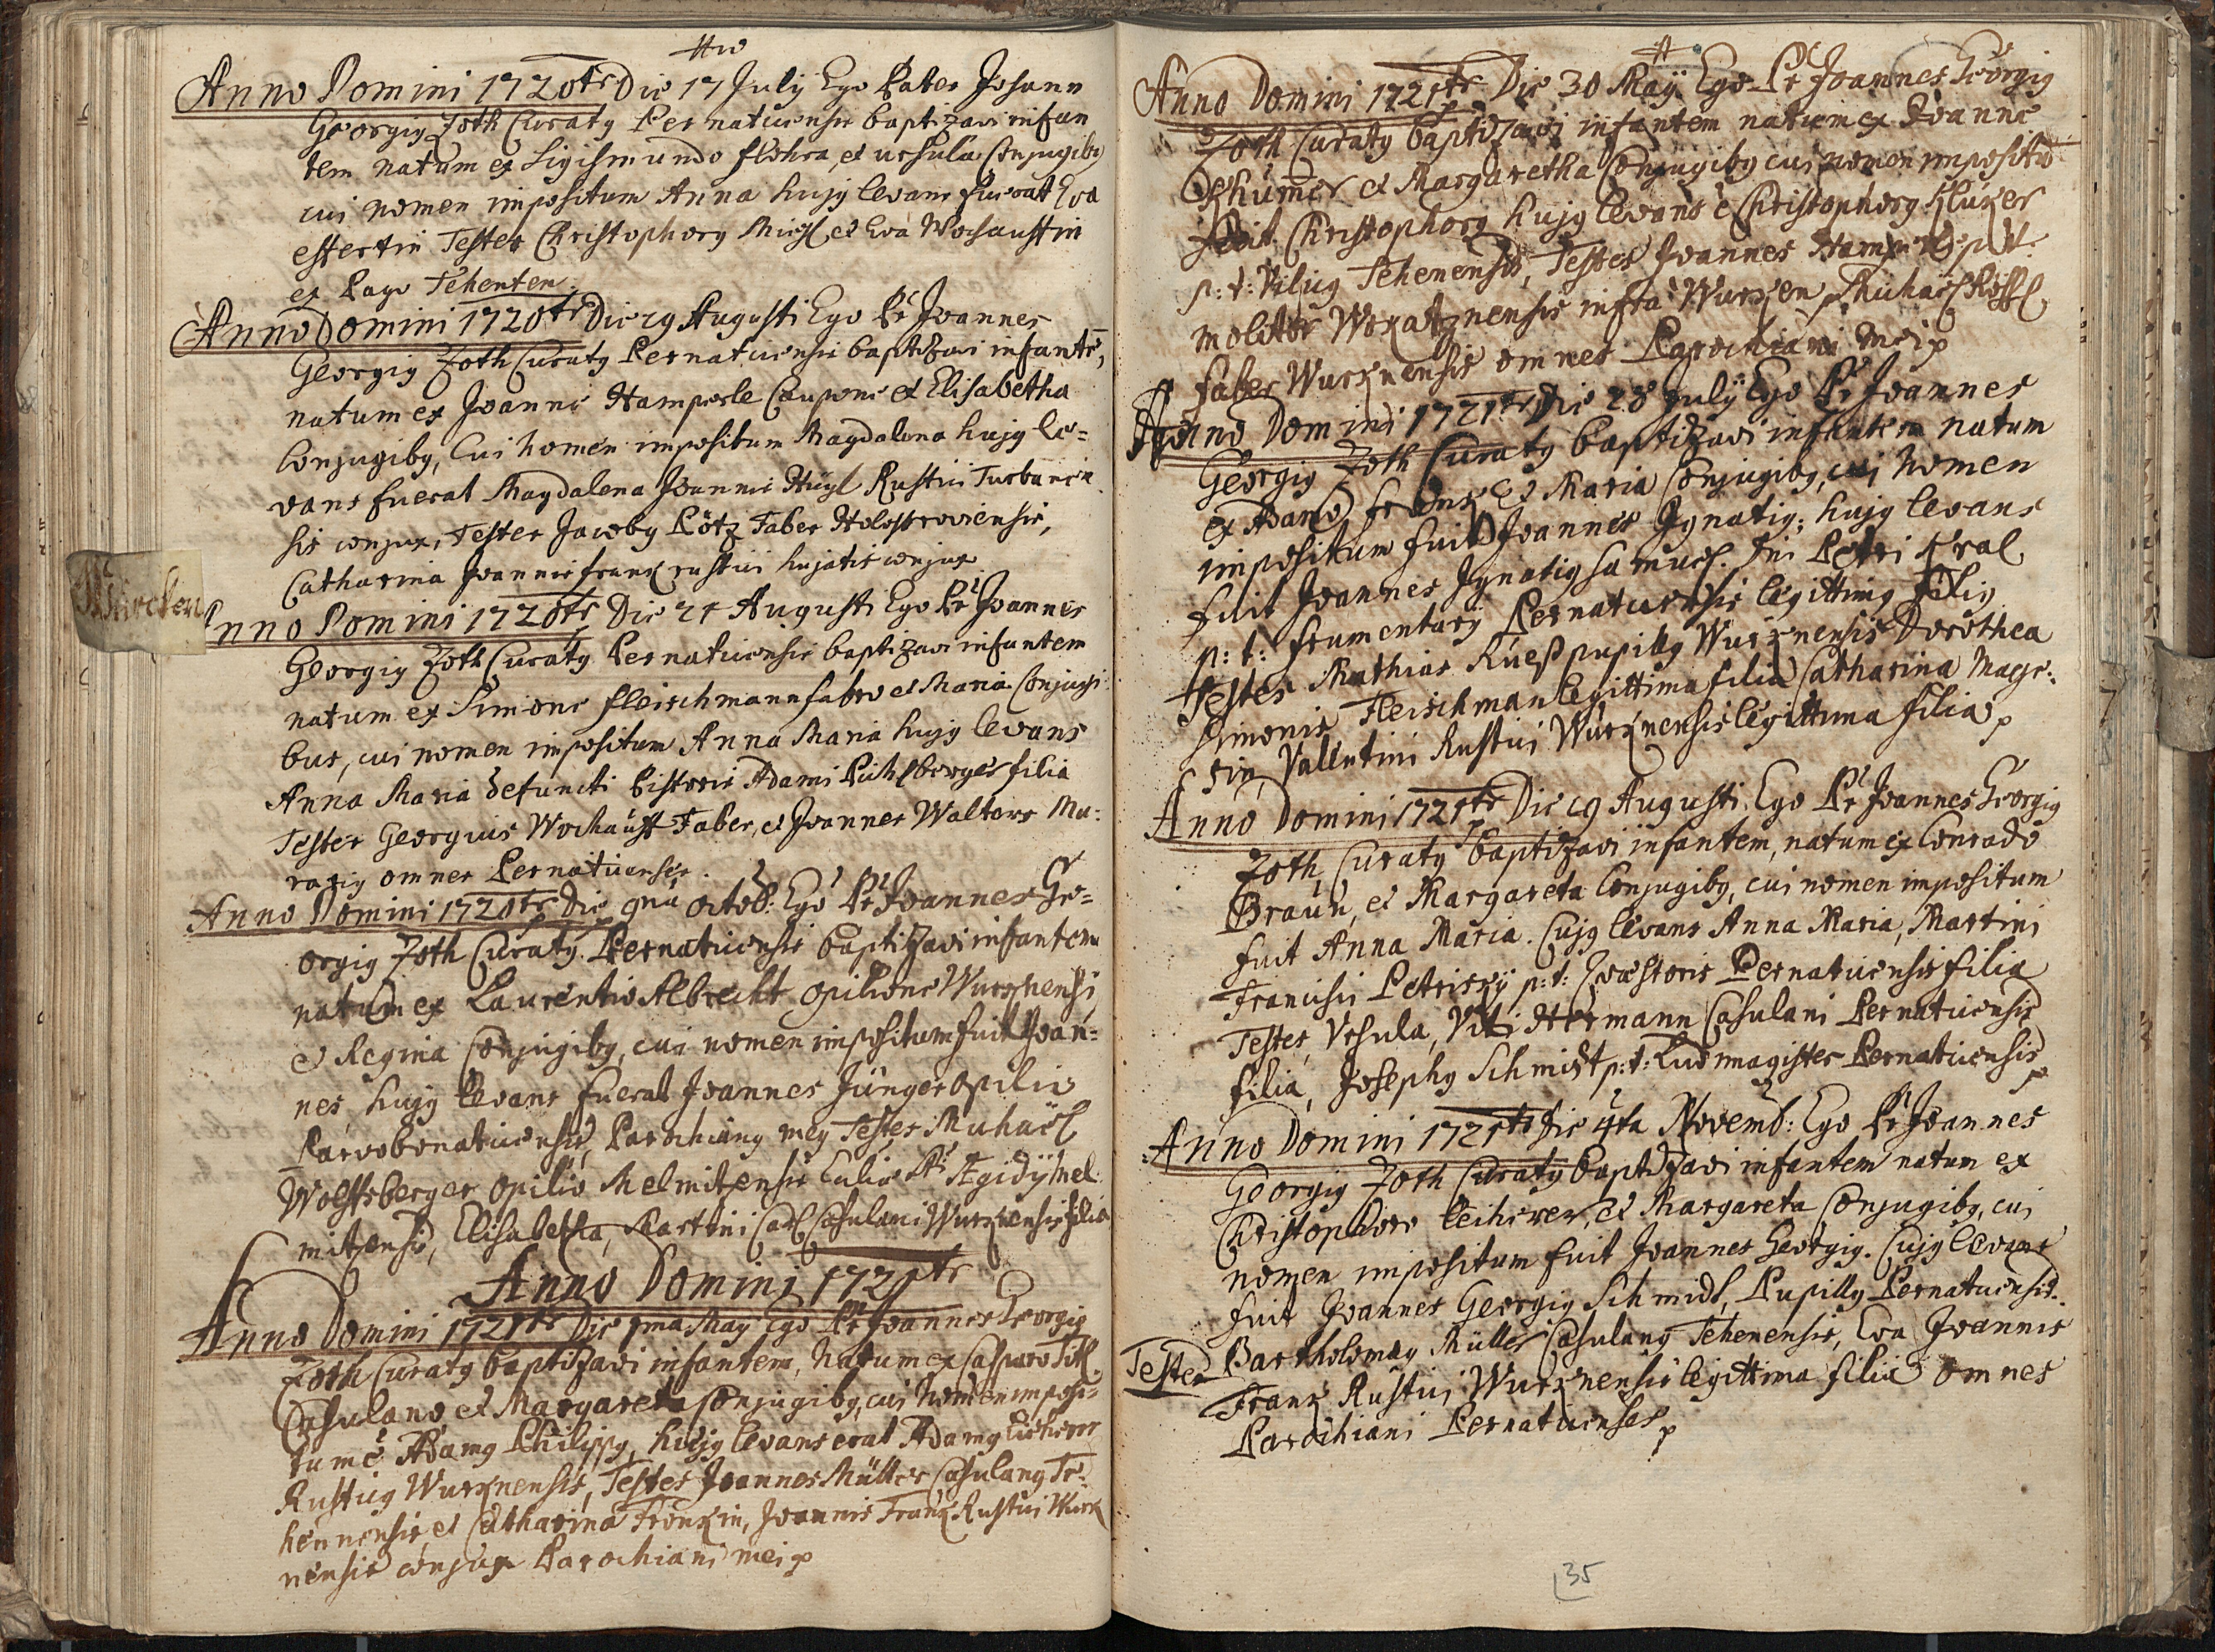 Anno Domini 1720tr Die 17 July Ego Pater Johann
Georgig Zoth Curatg Pernaticensis baptizavi infan
tem natum ex Sigismundo Flohra, et ursula Conjugibg
cui nomen impositum Anna hujg levans fuerat Eva
estertin Testes Christophorg Michl et Eva Wochaustin
ex Pago Tehenten.
Anno Domini 1720tr Die 19 Augusti Ego Pr Joannes
Georgig Zoth Curatg Pernaticensis baptizavi infantē,
natum ex Joanne Hamperle Caupone et Elisabetha
Conjugibg, Cui nomen impositum Magdalena hujg le=
vans fuerat Magdalena Joannis Hügl Rustici Turbanen
sis conjux, Testes Jacobg Pötz Faber Holostroviensis,
Catharina Joannis frank rustici hujatis conjux
Würcken
Anno Domini 1720tr Die 21 Augusti Ego Pr Joannes
Georgig Zoth Curatg Pernaticensis baptizavi infantem
natum ex Simone fleischmann fabro et Maria Conjugi
bus, cui nomen impositum Anna Maria hujg levans
Anna Maria defuncti Pistoris Adami Pichlberger filia
Testes Georgius Wochaust Faber, et Joannes Walters Mu:
rarig omnes Pernaticenses.
Anno Domini 1720tr Die 9na octob: Ego Pr Joannes Ge=
orgig Zoth Curatg Pernaticensis baptizavi infantem
natum ex Laurentio Albrecht opilione Wurznensi
et Regina Conjugibg, cui nomen impositum fuit Joan=
nes hujg levans fuerat Joannes Jünger opilio
Parvobonaticensis, Parochiang meg Testes Michaël
Wolfsberger opilio Melmitzensis
mitzensis, Elisabetha, Martini Carl Casulani Wurznensis filia
Anno Domini 1721tr
Anno Domini 1721tr Die 1ma May Ego Pr Joannes Georgig
Zoth Curatg baptizavi infantem, natum ex Casparo Titl
Casulano, et Margareta Conjugibg, cui nomen imposi=
tum ē Adamg Philippg, hujg levans erat Adamg
Rusticg Wurznensis, Testes Joannes Müller Casulang Te:
hennensis, et Catharina Frankin, Joannis Frank Rustici Wurz
nensis conjux Parochiani mei p
Anno Domini 1721tr Die 30 Maÿ Ego Pr Joannes Georgig
Zoth Curatg baptizavi infantem natum ex Joanne
et Margaretha Conjugibg cui nomen impositū
fuit Christophorg hujg levans ē Christophorg Kluzer
p: t: Vilicg Tehenensis, Testes Joannes Hamperl p.t.
molitor Woxatznensis infra Wurzen, Michaël Rössl
faber Wurznensis omnes Parochiani mei p
Anno Domini 1721tr Die 28 July Ego Pr Joannes
Georgig Zoth Curatg baptizavi infantem natum
ex Adamo Frank et Maria Conjugibg, cui nomen
impositum fuit Joannes Ignatig; hujg levans
fuit Joannes Ignatig Samuel. Dni Petri Kral
p: t: frumentarij Pernaticensis legittimg filig
Testes Mathias Rueß pupillg Wurznensis Dorothea
Simonis Fleischman legittima filia Catharina Maye:
rin, Vallentini Rustici Wurznensis legittima filia p
Anno Domini 1721tr Die 19 Augusti, Ego Pr Joannes Georgig
Zoth Curatg baptizavi infantem, natum ex Conrado
Braün, et Margareta Conjugibg, cui nomen impositum
fuit Anna Maria. Cujg levans Anna Maria, Martini
Francisci Petrizky p: t: Quæstoris Pernaticensis filia
Testes, Vrsula, Viti Hermann Casulani Pernaticensis
filia, Josephg Schmidt p: t: Ludimagister Pernaticensis p
Anno Domini 1721tr Die 4ta Novemb: Ego Pr Joannes
Georgig Zoth Curatg baptizavi infantem natum ex
Christophoro et Margareta Conjugibg, cui
nomen impositum fuit Joannes Georgig. Cujg levans
fuit Joannes Georgig Schmidt, Pupillg Pernaticensis.
Testes Bartholomæg Müller Casulang Tehenensis, Eva Joannis
Frank Rustici Wurznensis legittima filia omnes
Parochiani Pernaticenses p
35